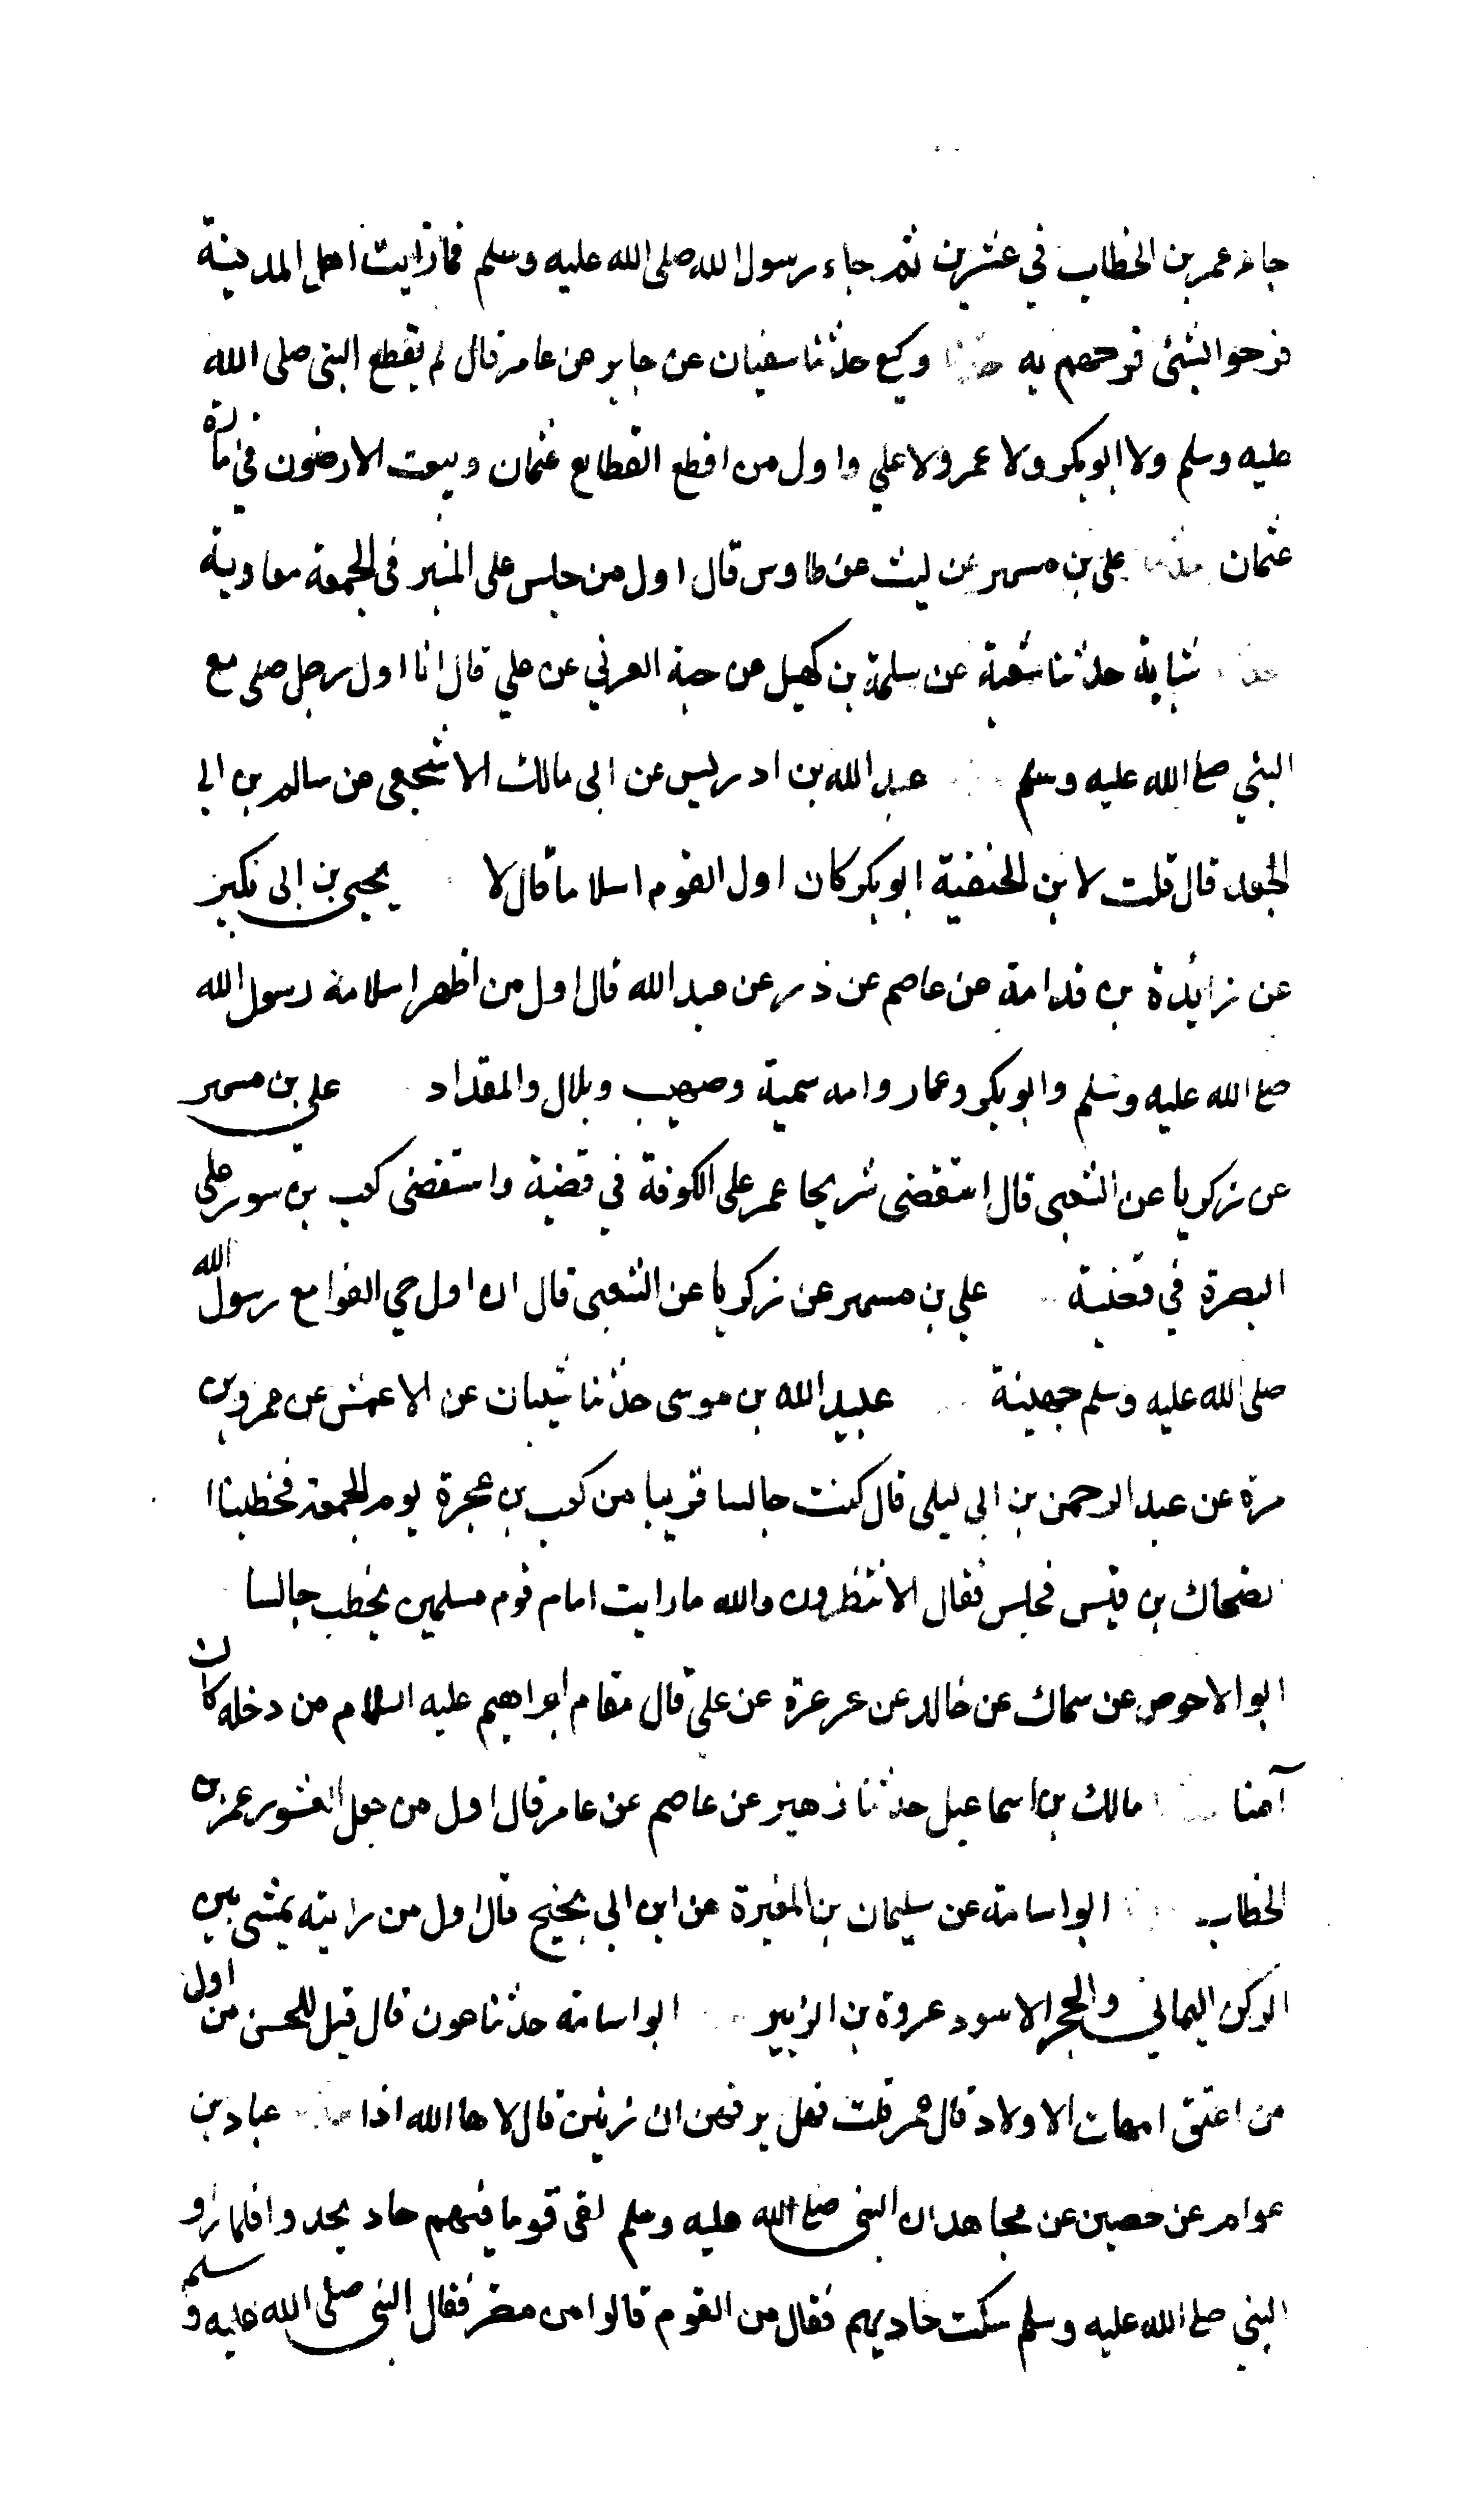 جاء عمر بن الخطاب في عشرين ثم جاء رسول الله صلى الله عليه وسلم فما رايت اهل المدينة
فرحوا بشئ فرحهم به حدثنا وكيع حدثنا سفيان عن جابر عن عامر قال لم يقطع النبى صلى الله
عليه وسلم ولا ابوبكر ولا عمر ولا علي واول من اقطع القطايع عثمان وبيعت الارضون في مارة
عثمان حدثنا على بن مسهر عن ليث عن طاوس قال اول من جلس على المنبر فى الجمعة معاوية
حدثنا شبابة حدثنا شعبة عن سلمة بن كهيل عن حبة العرني عن علي قال انا اول رجل صلى مع
النبي صلع الله عليه وسلم عبد الله بن ادريس عن ابى مالك الاشجعى عن سالم بن ابى
الجعد قال قلت لابن الحنفية ابوبكر كان اول القوم اسلاما قال لا يحيى بن ابى نكير
عن زايدة بن قدامة عن عاصم عن ذر عن عبد الله قال اول من اظهر اسلامه رسول الله
صلع الله عليه وسلم وابوبكر وعمار وامه سمية وصهيب وبلال والمقداد على بن مسهر
عن زكريا عن الشعبى قال استقضى شريحا عمر على الكوفة في قضية واستقضى كعب بن سور على
البصرة في قضية علي بن مسهر عن زكريا عن الشعبى قال ان اول حي الفوا مع رسول الله
صلى الله عليه وسلم جهينة عبيد الله بن موسى حدثنا شيبان عن الاعمش عن عمرو بن
مرة عن عبد الرحمن بن ابى ليلى قال كنت جالسا قريبا من كعب بن عجرة يوم الجمعة فخطبنا ا
لضحاك بن قيس فجلس فقال الا تنظرون والله ما رايت امام قوم مسلمين يخطب جالسا
ابو الاحوص عن سماك عن خالد عن عرعرة عن علي قال مقام ابراهيم عليه السلام من دخله كان
آمنا مالك بن اسماعيل حدثنا زهير عن عاصم عن عامر قال اول من جعل العشور عمر بن
الخطاب ابو اسامة عن سليمان بن المغيرة عن ابن ابي نجيح قال اول من رايته يمشى بين
الركن اليماني والحجر الاسود عروة بن الزبير ابو اسامة حدثنا عون قال قيل للحسن من اول
من اعتق امهات الاولاد قال عمر قلت فهل يرقهن ان زنين قال لا ها الله اذا عباد بن
عوام عن حصين عن مجاهد ان النبى صلع الله عليه وسلم لقى قوما فيهم حاد يحدو فلما راو
النبي صلع الله عليه وسلم سكت حاديهم فقال من القوم قالوا من مضر فقال النبى صلى الله عليه وسلم